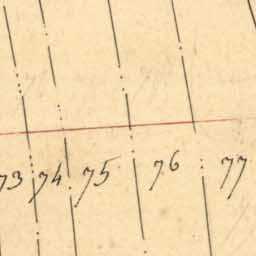 73 74 75 76 77